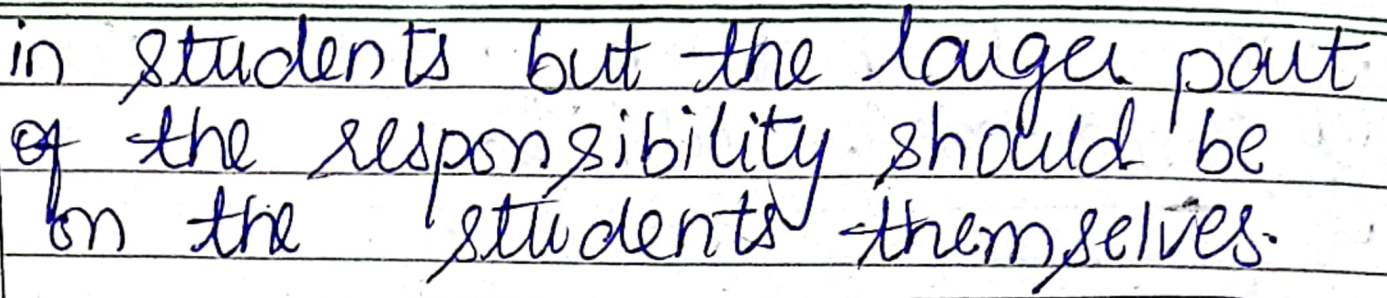 in students but the larger part
of the responsibility should be
on the students themselves.